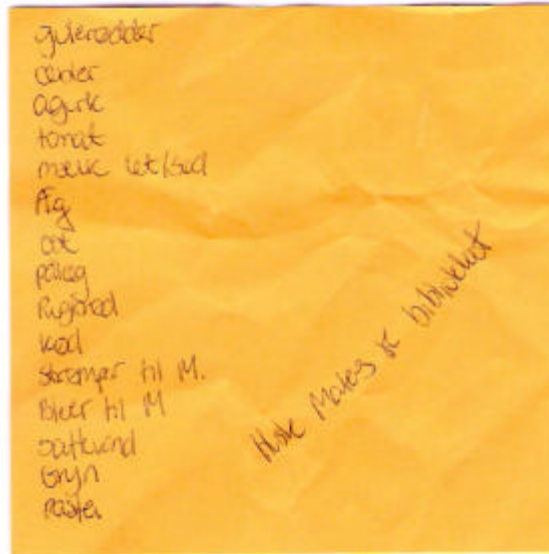 gulerødder
agurk
tomat
mælk let/sød
Æg
ost
pålæg
Rugbrød
kød
strømper til M.
Bleer til M
saftevand
Gryn
Huske biblioteket